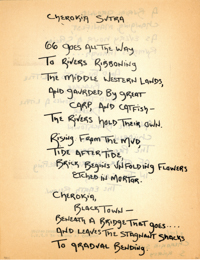 CHEROKIA SUTRA
66 GOES ALL THE WAY
TO RIVERS RIBBONING
THE MIDDLE WESTERN LANDS,
AND GAURDED BY GREAT
CARP AND CATFISH-
THE RIVERS HOLD THEIR OWN.
RISING FROM THE MUD
TIDE AFTER TIDE,
BRICK BEGINS UNFOLDING FLOWERS
ETCHED IN MORTAR.
CHEROKIA,
BLACK TOWN-
BENEATH A BRIDGE THAT GOES....
AND LEAVES THE STAGNANT SHACKS
TO GRADUAL BENDING.